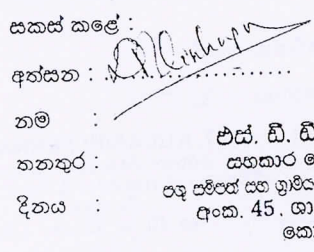 සකස් කළේ :
අත්සන :
නම
එස්. ඩී. ඩී
තනතුර :
සහකාර
පශු සම්පත් සහ ග්‍රාමීය
දිනය :
අංක. 45, ශා
කො